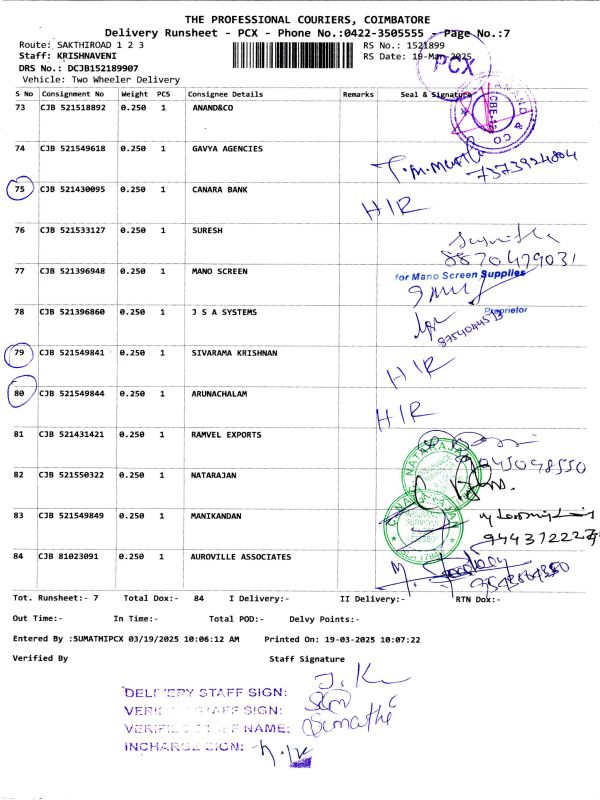 THE PROFESSIONAL COURIERS, COIMBATORE
Delivery Runsheet - PCX - Phone No.:0422-3505555 - Page No.:7
Route: SAKTHIROAD 1 2 3 RS No.: 1521899
Staff: KRISHNAVENI RS Date: 19-Mar-2025
DRS No.: DCJB152189907
Vehicle: Two Wheeler Delivery
PCX
S No Consignment No Weight PCS Consignee Details Remarks Seal & Signature
73 CJB 521518892 0.250 1 ANAND&CO
ANAND & CO CBE-12
74 CJB 521549618 0.250 1 GAVYA AGENCIES
7373924804
75 CJB 521430095 0.250 1 CANARA BANK H/R
76 CJB 521533127 0.250 1 SURESH
8870479031
77 CJB 521396948 0.250 1 MANO SCREEN for Mano Screen Supplies
Proprietor
78 CJB 521396860 0.250 1 J S A SYSTEMS
79 CJB 521549841 0.250 1 SIVARAMA KRISHNAN H/R
80 CJB 521549844 0.250 1 ARUNACHALAM H/R
81 CJB 521431421 0.250 1 RAMVEL EXPORTS
82 CJB 521550322 0.250 1 NATARAJAN
83 CJB 521549849 0.250 1 MANIKANDAN
84 CJB 81023091 0.250 1 AUROVILLE ASSOCIATES
Tot. Runsheet:- 7 Total Dox:- 84 I Delivery:- II Delivery:- RTN Dox:-
Out Time:- In Time:- Total POD:- Delvy Points:-
Entered By :SUMATHIPCX 03/19/2025 10:06:12 AM Printed On: 19-03-2025 10:07:22
Verified By Staff Signature
DELIVERY STAFF SIGN:
VERIFIED STAFF SIGN:
VERIFIED STAFF NAME: Sumathi
INCHARGE SIGN: